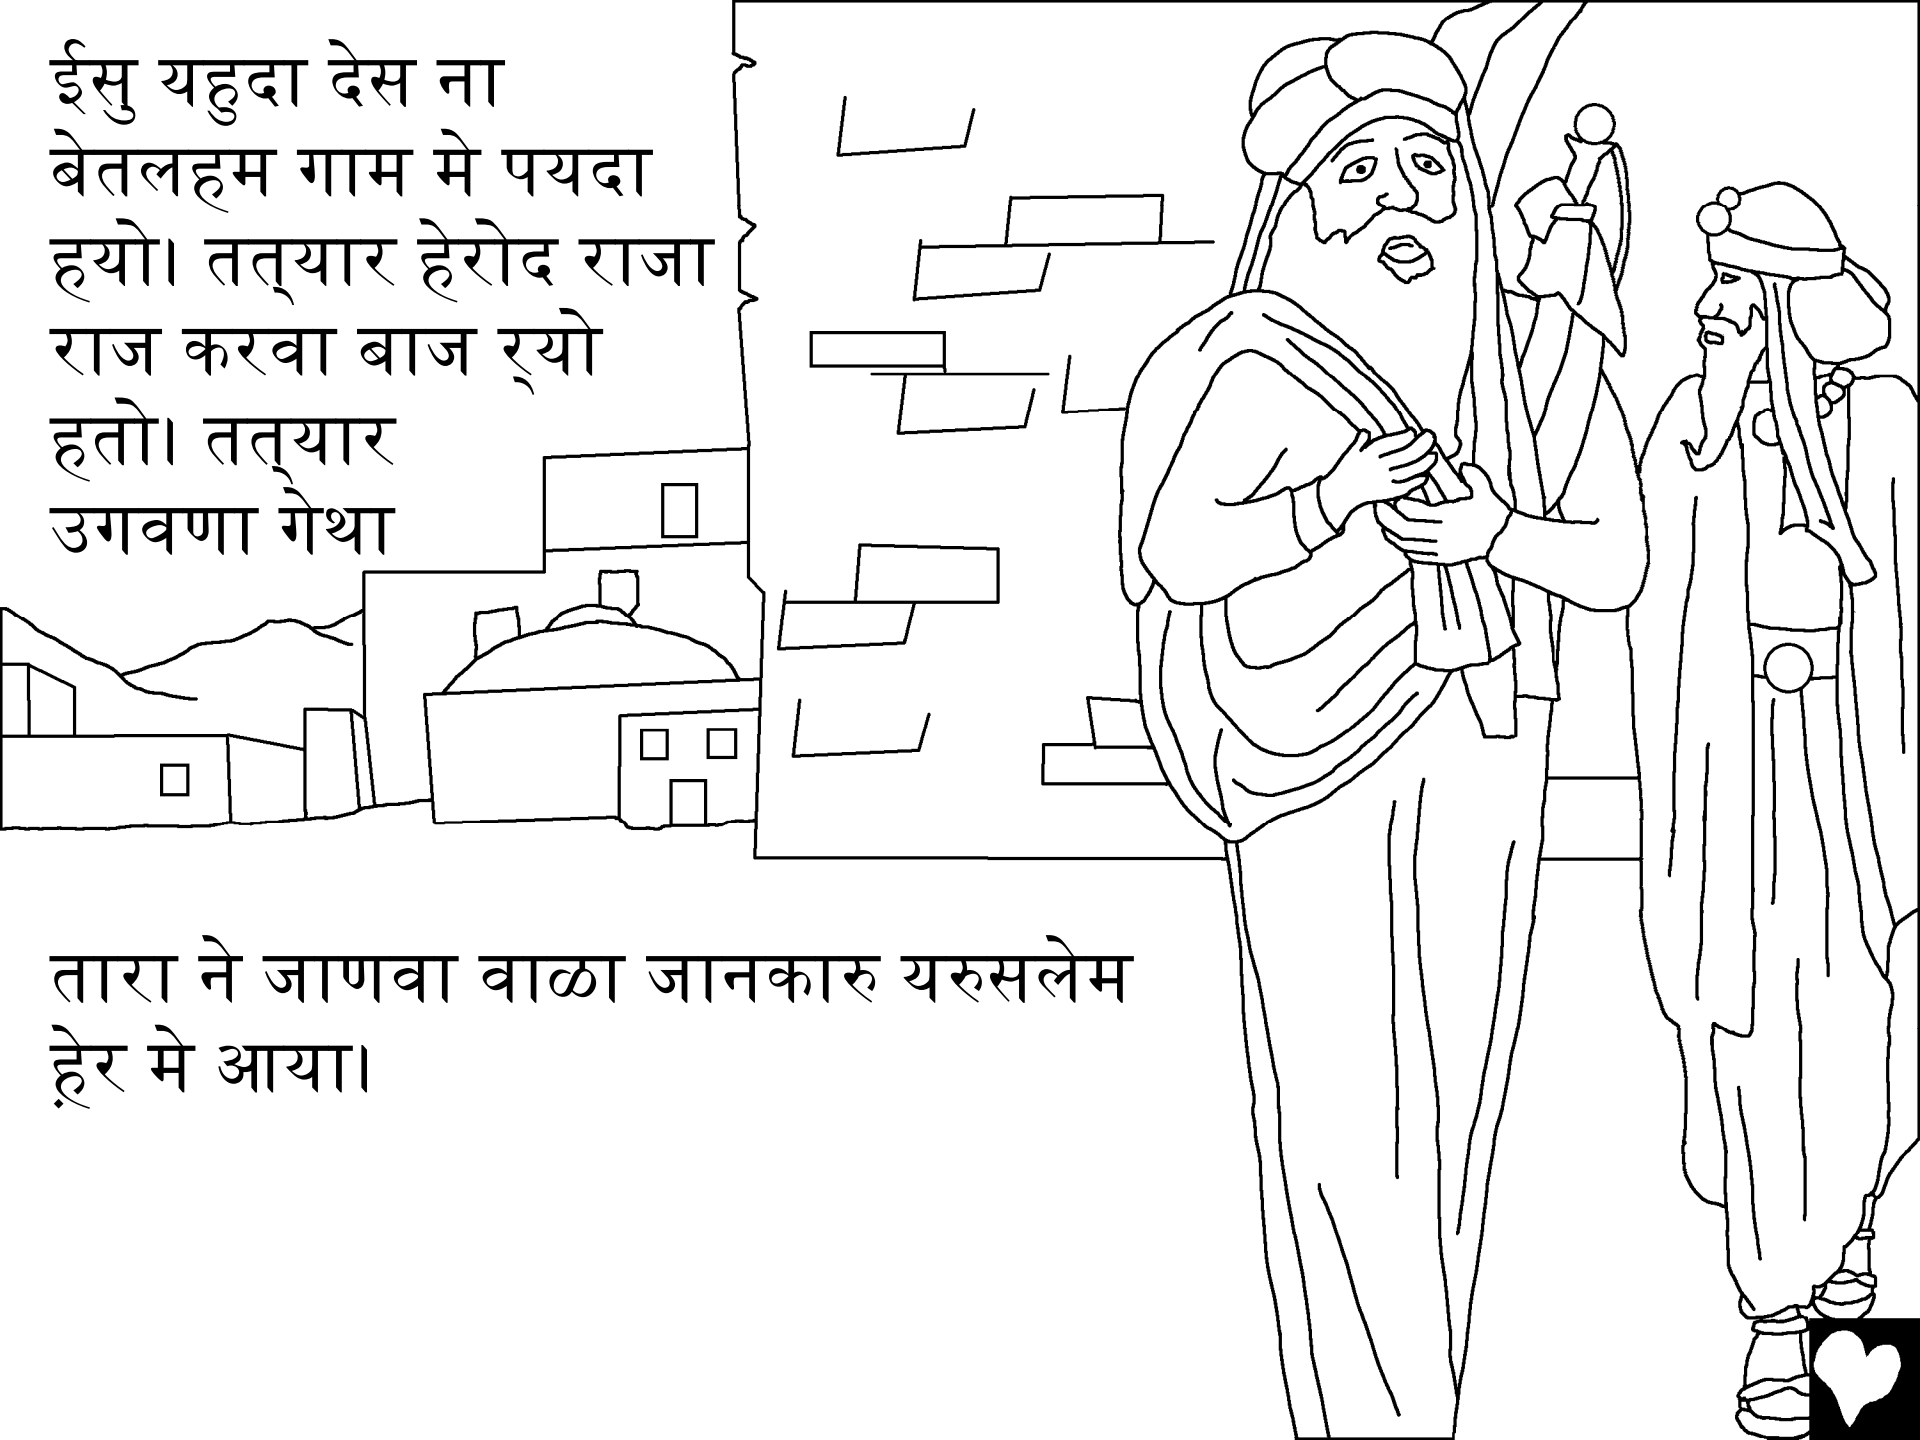 ईसु यहुदा देस ना
बेतलहम गाम मे पयदा
हयो। तत्‌यार हेरोद राजा
राज करवा बाज र्‌यो
हतो। तत्‌यार
उगवणा गेथा
तारा ने जाणवा वाळा जानकारु यरुसलेम
ह़ेर मे आया।